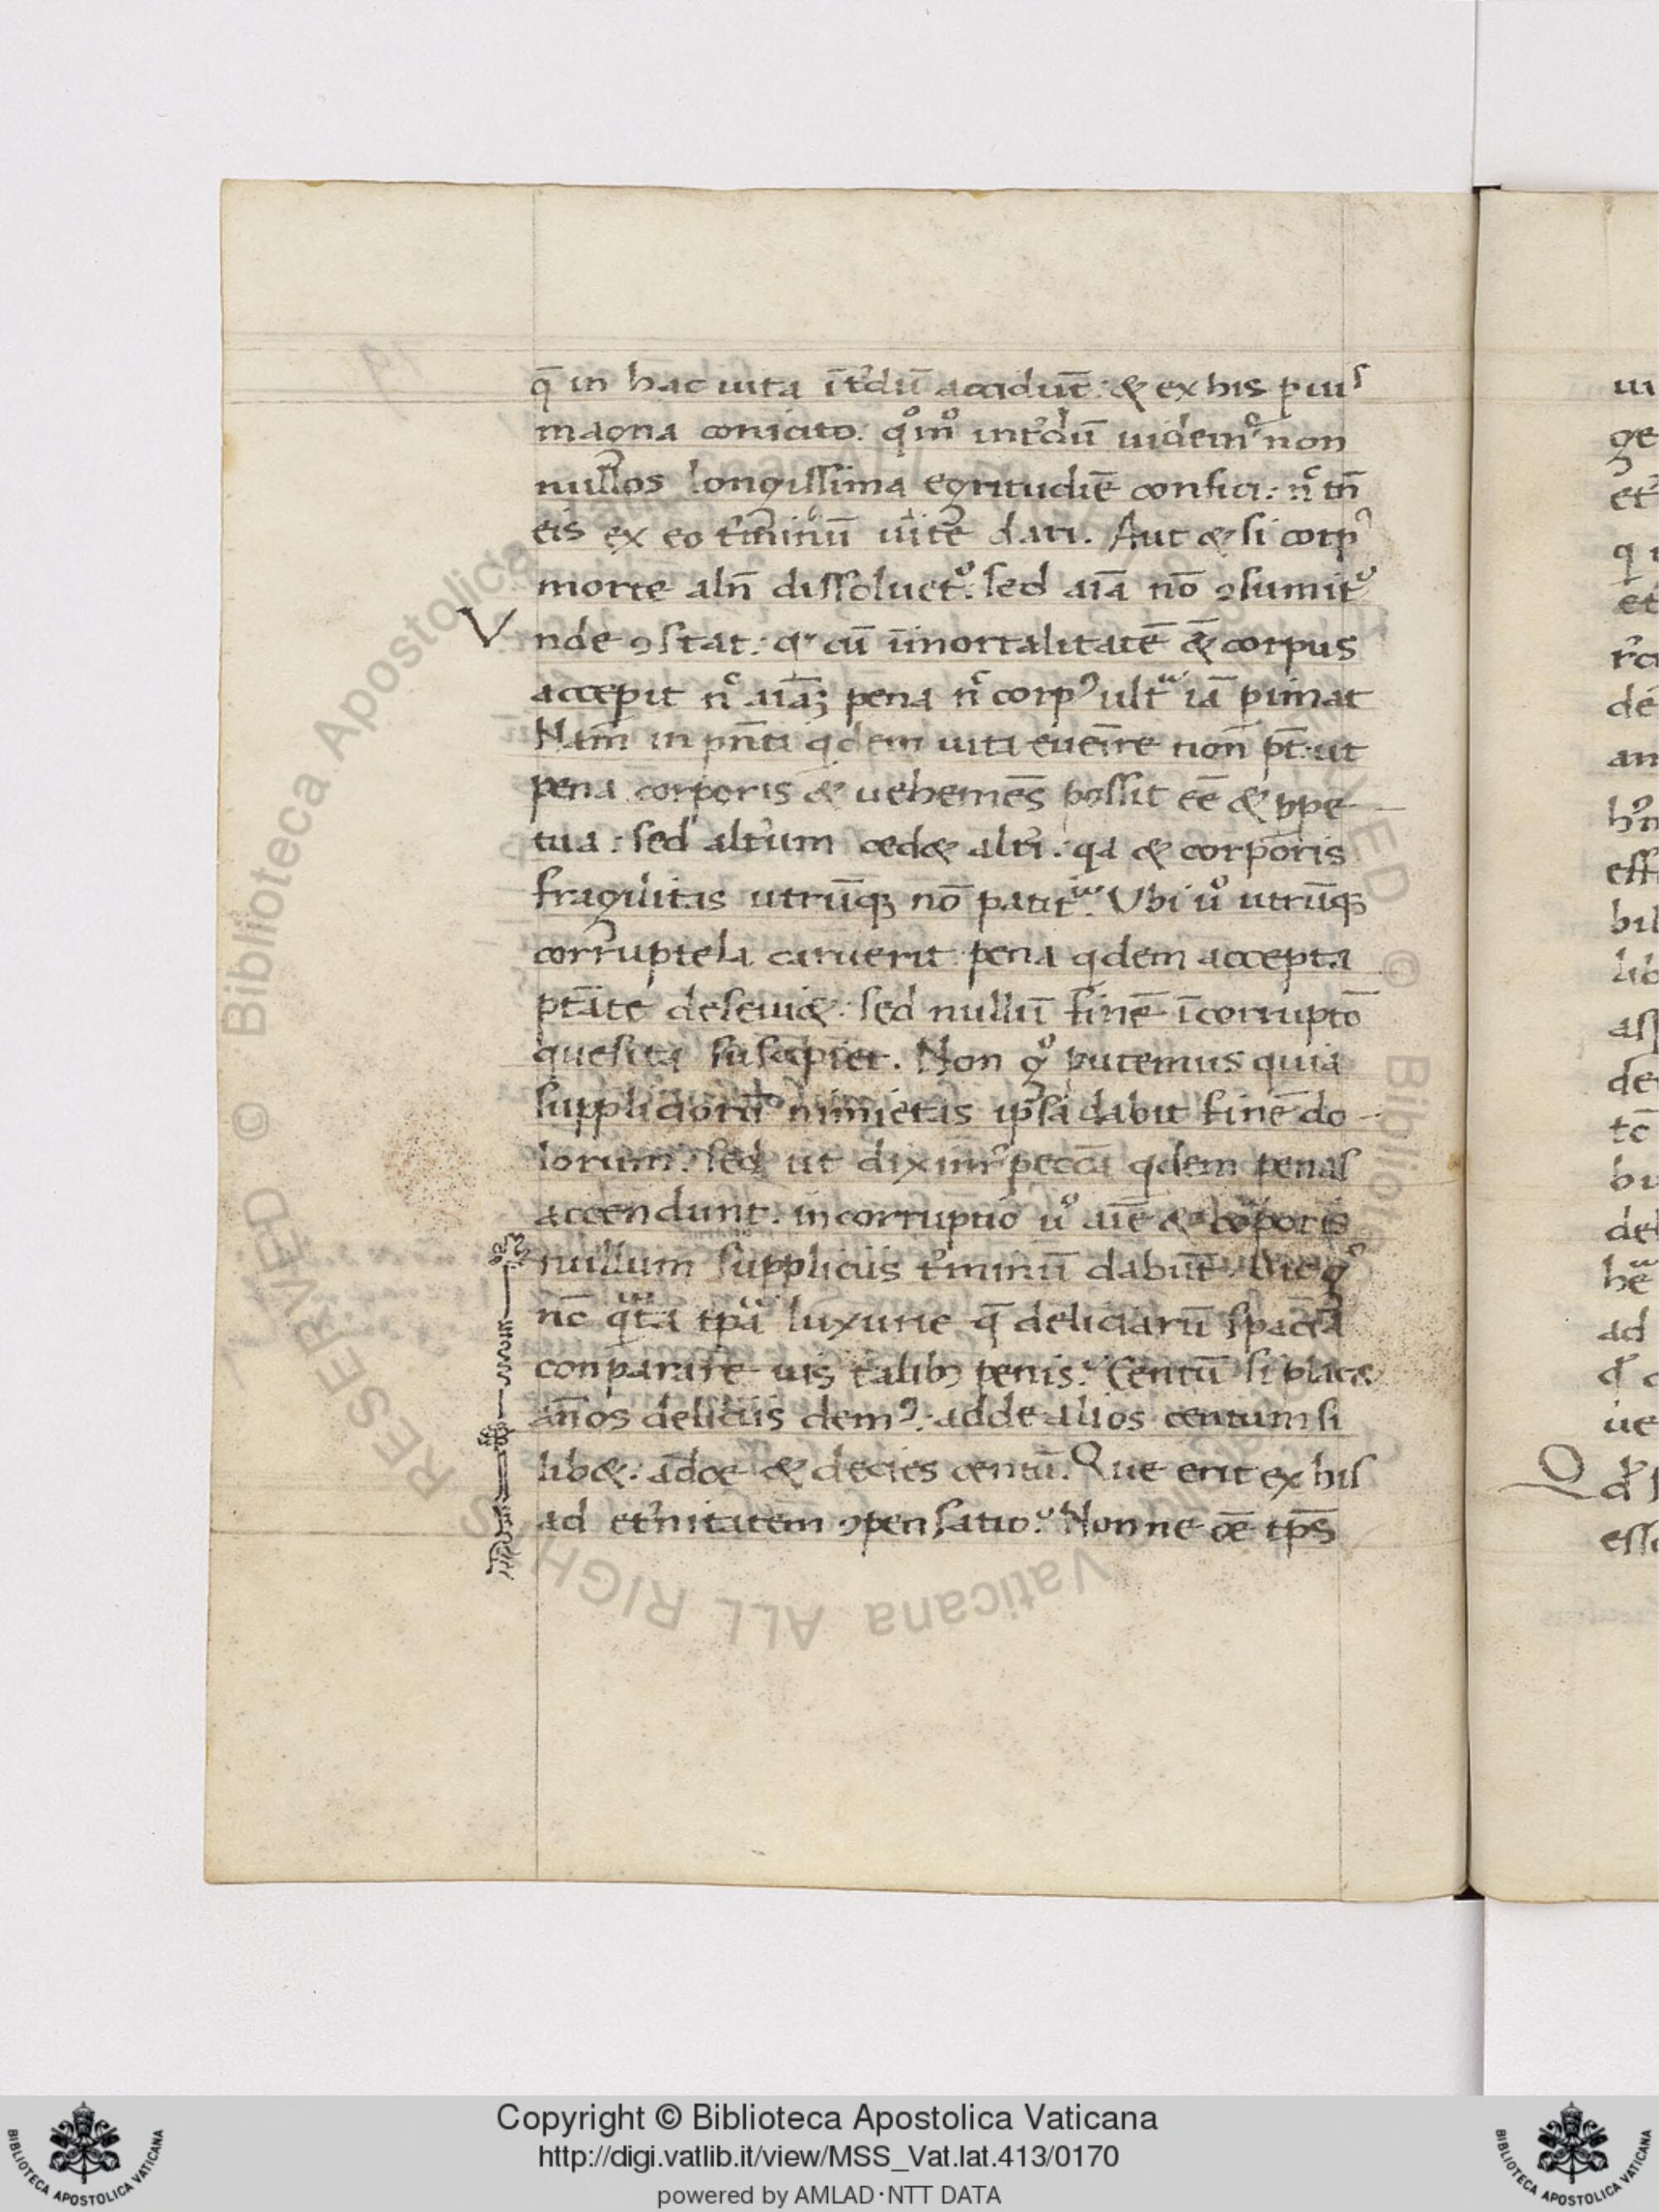 q̄ in hac uita īt͛dū accidūt: & ex his p̱uiˢ
magna conicito. qͦmͦ int͛dū uidemꝰ non
nullos longissima egritudīe confici: nͨ tn̄
eis ex eo t͛minū uite dari. Aut & si corpꝰ
morte aln̄ dissoluet᷑. sed aīa nō ꝯsumit᷑
Vnde ꝯstat: q cū īmortalitatē & corpus
accepit nͨ aīaꝫ pena nͨ corpꝰ ult᷑ iā pimat
Nam in pn̄ti qdem uita eueīre non pt̄. ut
pena corporis & uehemēs possit eē & ꝑpe
tua: sed alt͛um ced& alt͛i. qa & corporis
fragilitas utrūqꝫ nō patit᷑. Vbi uͦ utrūqꝫ
corruptela caruerit pena qdem accepta
pt̄ate deseui&: sed nullū finē īcorruptō
quesita suscipiet. Non gͦ putemus quia
suppliciorū nimietas ipsa dabit finē do
lorum. sed ut diximꝰ peccā qdem penas
accendunt. incorruptio uͦ aīe & corporis
nullum suppliciis t͛minū dabūt. Dic gͦ
nc̄ qᵃta tpᵃ luxurie q̄ deliciarū spacia
conparare uis talibꝫ penis? Centū si plac&
annos deliciis demꝰ. adde alios centum si
lib&: adde & decies centū. Que erit ex his
ad et͛nitatem ꝯpensatio? Nonne oē tp̄s
Copyright © Biblioteca Apostolica Vaticana
http://digi.vatlib.it/view/MSS_Vat.lat.413/0170
powered by AMLAD·NTT DATA